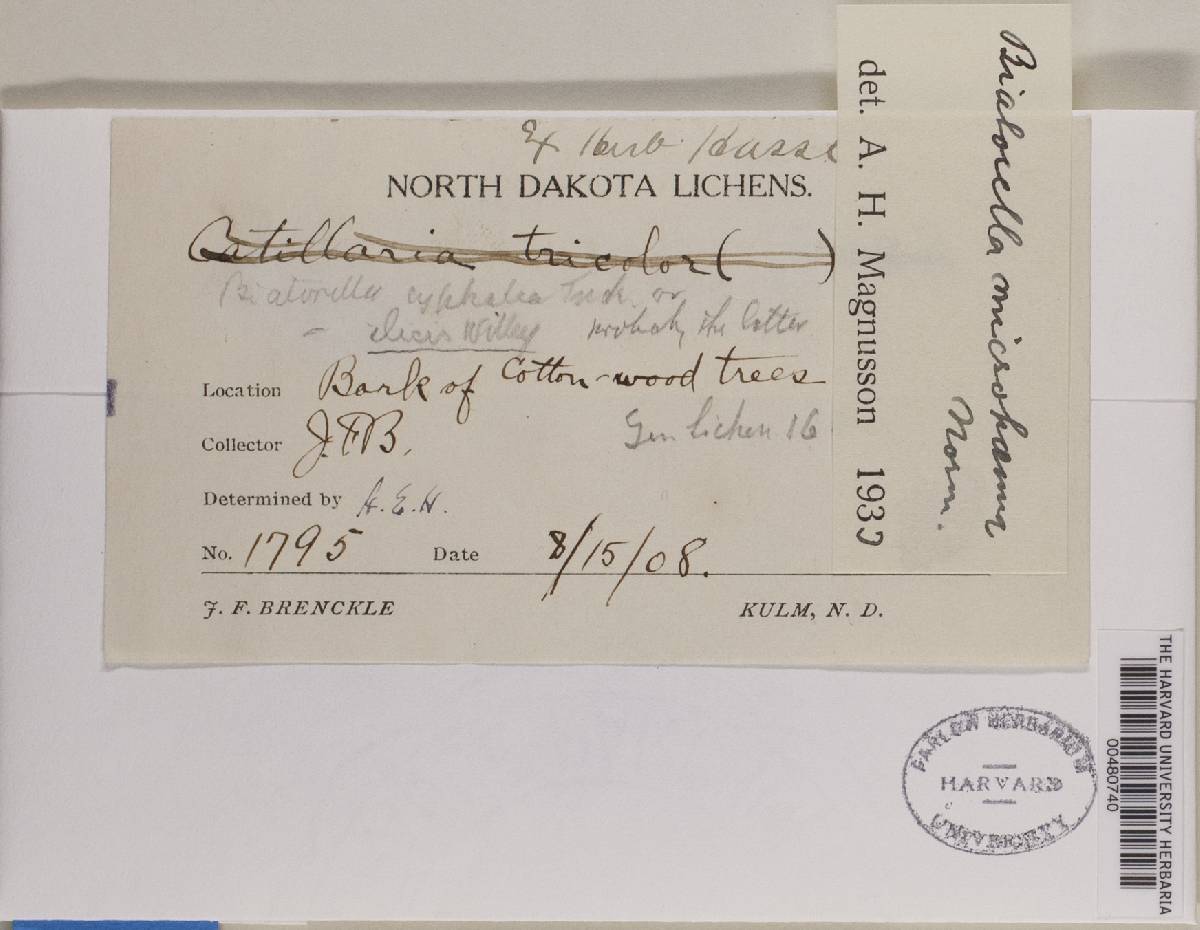 Ex Herb. Hasse
NORTH DAKOTA LICHENS.
Catillaria tricolor ( )
Biatorella cyphalea Tuck. or
– ilicis Willey probably the latter
Location Bark of Cotton-wood trees
Collector J.F.B.
Gen lichen 16
Determined by H. E. H.
No. 1795 Date 8/15/08.
J. F. BRENCKLE KULM, N. D.
Biatorella microhæma
Norm.
det. A. H. Magnusson 193
FARLOW HERBARIUM
HARVARD
UNIVERSITY
THE HARVARD UNIVERSITY HERBARIA
00480740